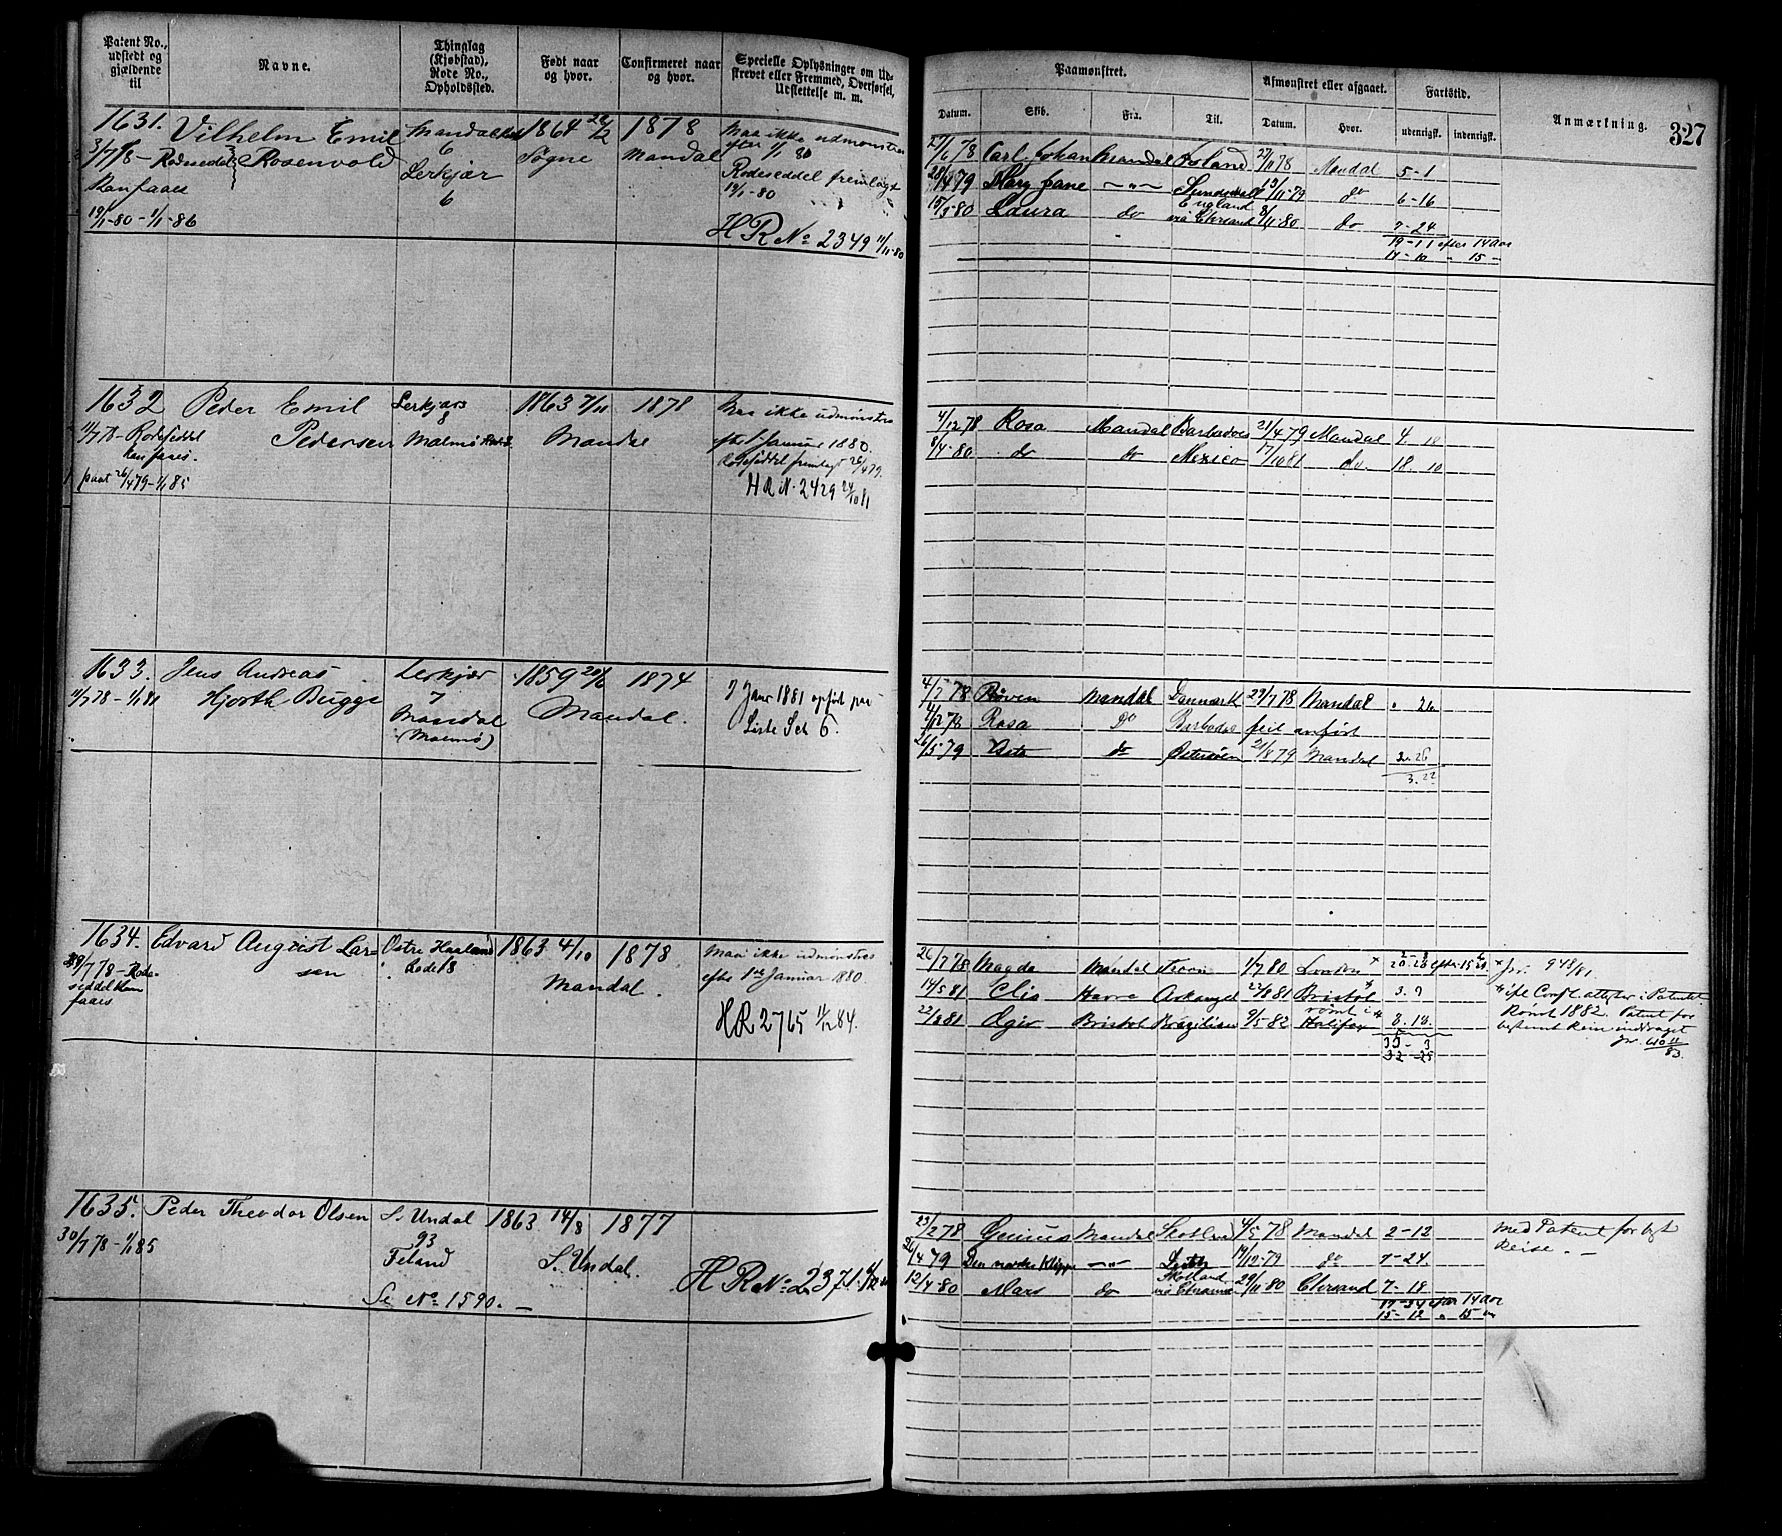 Patent No., udstedt og gjældende til
Navne.
Thinglag (Kjøbstad), Rode No., Opholdssted.
Født naar og hvor.
Confirmeret naar og hvor.
Specielle Oplysninger om Udskrevet eller Fremmed, Overførsel, Udslettelse m. m.
Paamønstret.
Afmønstret eller afgaaet.
Fartstid.
Anmærkning.
327
Datum.
Skib.
Fra.
Til.
Datum.
Hvor.
udenrigsk.
indenrigsk.
1631. Vilhelm Emil Rosenvold
3/7 78 - Rodeseddel
kan faaes
19/1-80-1/1-86
Mandal
6
Lerkjær
6
1864 26/2
Søgne
1878
Mandal
Maa ikke udmønstres
efter 1/1 80
Rodeseddel fremlagt
19/1-80
H R No 2349 11/11-80
27/6 78 Carl Johan Mandal Island 27/11 78 Mandal 5-1
28/4 79 Mary Jane -„- Sundsvall 13/11-79 do 6-16
15/3-80 Laura do England via Chrsand 8/11-80 do 7-24
19-11 efter 14 Aar
17-10 " 15 -
1632 Peder Emil Pedersen
11/7 78 - Rodeseddel
kan faaes.
paat 26/4 79-1/1 85
Lerkjærs
8
Malmø
1863 7/11
Mandal
1878
Maa ikke udmønstres
efter 1 Januar 1880.
Rodeseddel fremlagt 26/4 79.
H R N. 2429 24/10 81
4/12 78 Rosa Mandal Barbados 21/4 79 Mandal 4 18
8/4-80 do do Mexico 17/10 81 do 18 10
1633. Jens Andreas Hjorth Bugge
11/7 78-1/1 81
Lerkjær
7
Mandal
(Malmø)
1859 20/6
Mandal.
1874
I Jan 1881 opført paa
Liste Lit 6.
4/7 78 Mandal Danmark 29/7 78 Mandal " 26
4/12 78 Rosa Do Barbados feil anført
26/5 79 do Østersøen 21/8 79 Mandal 2. 26
3. 22
1634. Edvard August Larsen
29/7 78 - Rodeseddel kan
faaes
Østre Haaland
Rode 18
1863 4/10
Mandal.
1878
Maa ikke udmønstres
efter 1ste Januar 1880
H R 2765 11/12 84.
26/7 78 Magda Mandal 1/7 80 London x
14/5 81 Elis Havre Arkangel 22/8 81 Bristol 3. 9
22/8 81 Ægir Bristol Brazilien 9/5 82 Halifax 8. 18.
rømt i
35- 3
32-25
x Jr. 948/81.
ifl Consl. attester i Patentet
Rømt 1882. Patent for
bestemt Reise inddraget
1635. Peder Theodor Olsen
30/7 78-1/1 85
S. Undal
93
Feland
Se No 1590. -
1863 14/8
S. Undal.
1877
H R No 2371.
23/2 78 Genius Mandal 4/5 78 Mandal 2-12
26/4 79 Den norske Klippe -„- Leith 19/12-79 do 7-24
12/4-80 Mars do Skotland 29/11-80 Chrsand 7-18
17-24 efter 14 Aar
15-12 " 15
med Patent for bgt
Reise. -